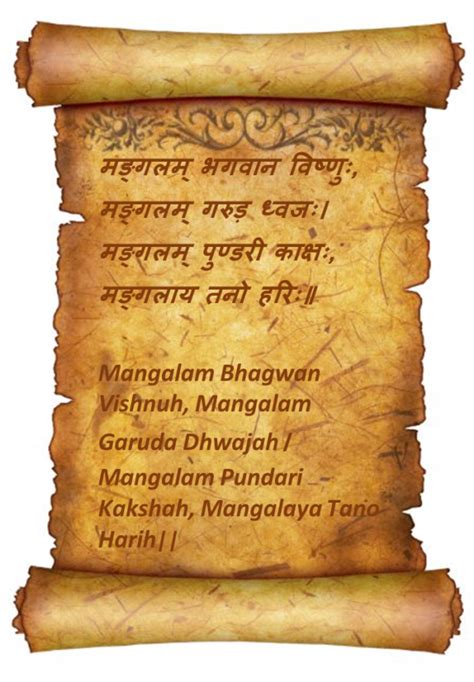 मङ्गलम् भगवान विष्णुः,
मङ्गलम् गरुड़ ध्वजः।
मङ्गलम् पुण्डरी काक्षः,
मङ्गलाय तनो हरिः॥
Mangalam Bhagwan
Vishnuh, Mangalam
Garuda Dhwajah।
Mangalam Pundari
Kakshah, Mangalaya Tano
Harih||